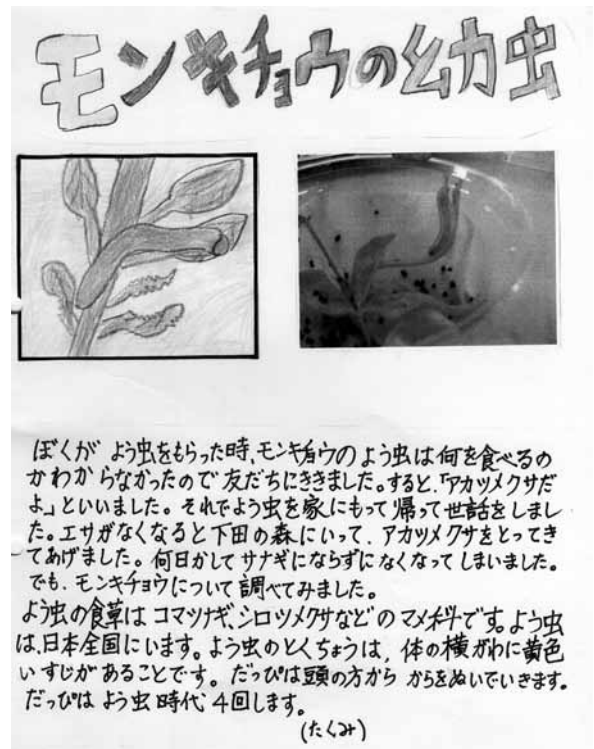 モンキチョウの幼虫
ぼくが よう虫をもらった時、モンキチョウのよう虫は何を食べるの
かわからなかったので友だちにききました。すると、「アカツメクサだ
よ。」といいました。それでよう虫を家にもって帰って世話をしまし
た。エサがなくなると下田の森にいって、アカツメクサをとってき
てあげました。何日かしてサナギにならずになくなってしまいました。
でも、モンキチョウについて調べてみました。
よう虫の食草はコマツナギ、シロツメクサなどのマメ科です。よう虫
は、日本全国にいます。よう虫のとくちょうは、体の横がわに黄色
いすじがあることです。だっぴは頭の方から からをぬいでいきます。
だっぴは よう虫時代、4回します。
(たくみ)